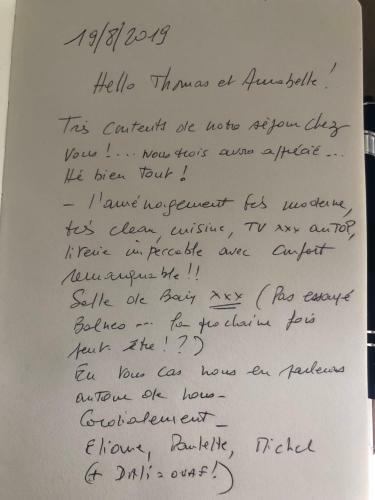 19/8/2019
Hello Thomas et Annabelle !
Très contents de notre séjour chez
vous !... nous trois avons apprécié...
Hé bien tout !
- l'aménagement très moderne,
très clean, cuisine, TV xxx au TOP,
literie impeccable avec confort
remarquable !!
Salle de Bain xxx (Pas essayé
Balnéo --- la prochaine fois
peut être ! ?)
En tous cas nous en parlerons
autour de nous -
Cordialement -
Eliane, Paulette, Michel
(+ DALI = OUAF !)